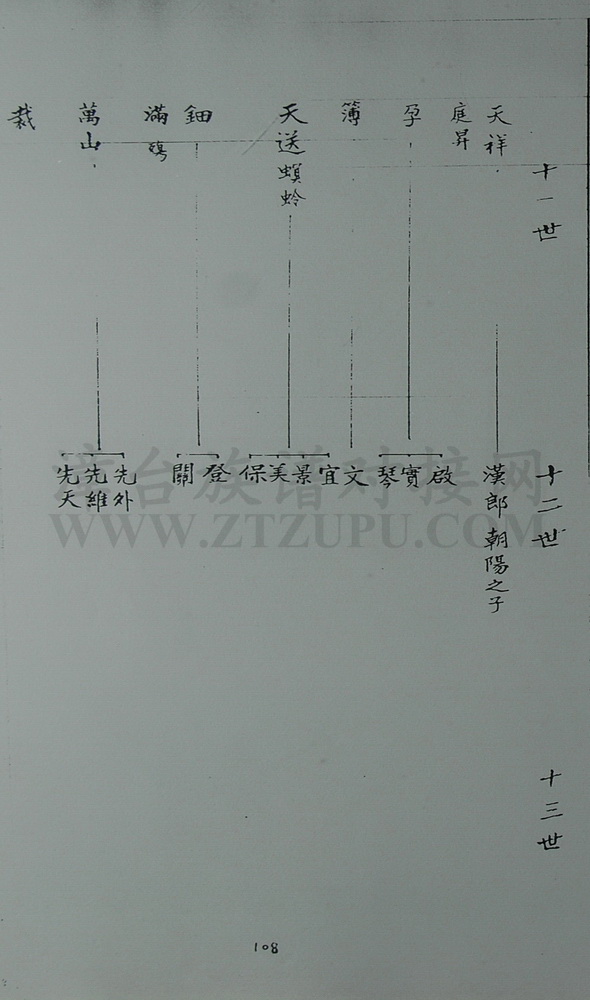 十一世
天祥
庭昇
孕
簿
天送螟蛉
鈿
滿
萬山
裁
十二世
漢郎 朝陽之子
啟
實
琴
文
宜
景
美
保
登
關
先外
先維
先天
十三世
滨台族谱对接网
WWW.ZTZUPU.COM
108